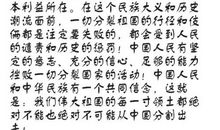 本利益所在。在这个民族大义和历史
潮流面前，一切分裂祖国的行径和伎
俩都是注定要失败的，都会受到人民
的谴责和历史的惩罚！中国人民有坚
定的意志、充分的信心、足够的能力
挫败一切分裂国家的活动！中国人民
和中华民族有一个共同信念，这就
是：我们伟大祖国的每一寸领土都绝
对不能也绝对不可能从中国分割出
去！